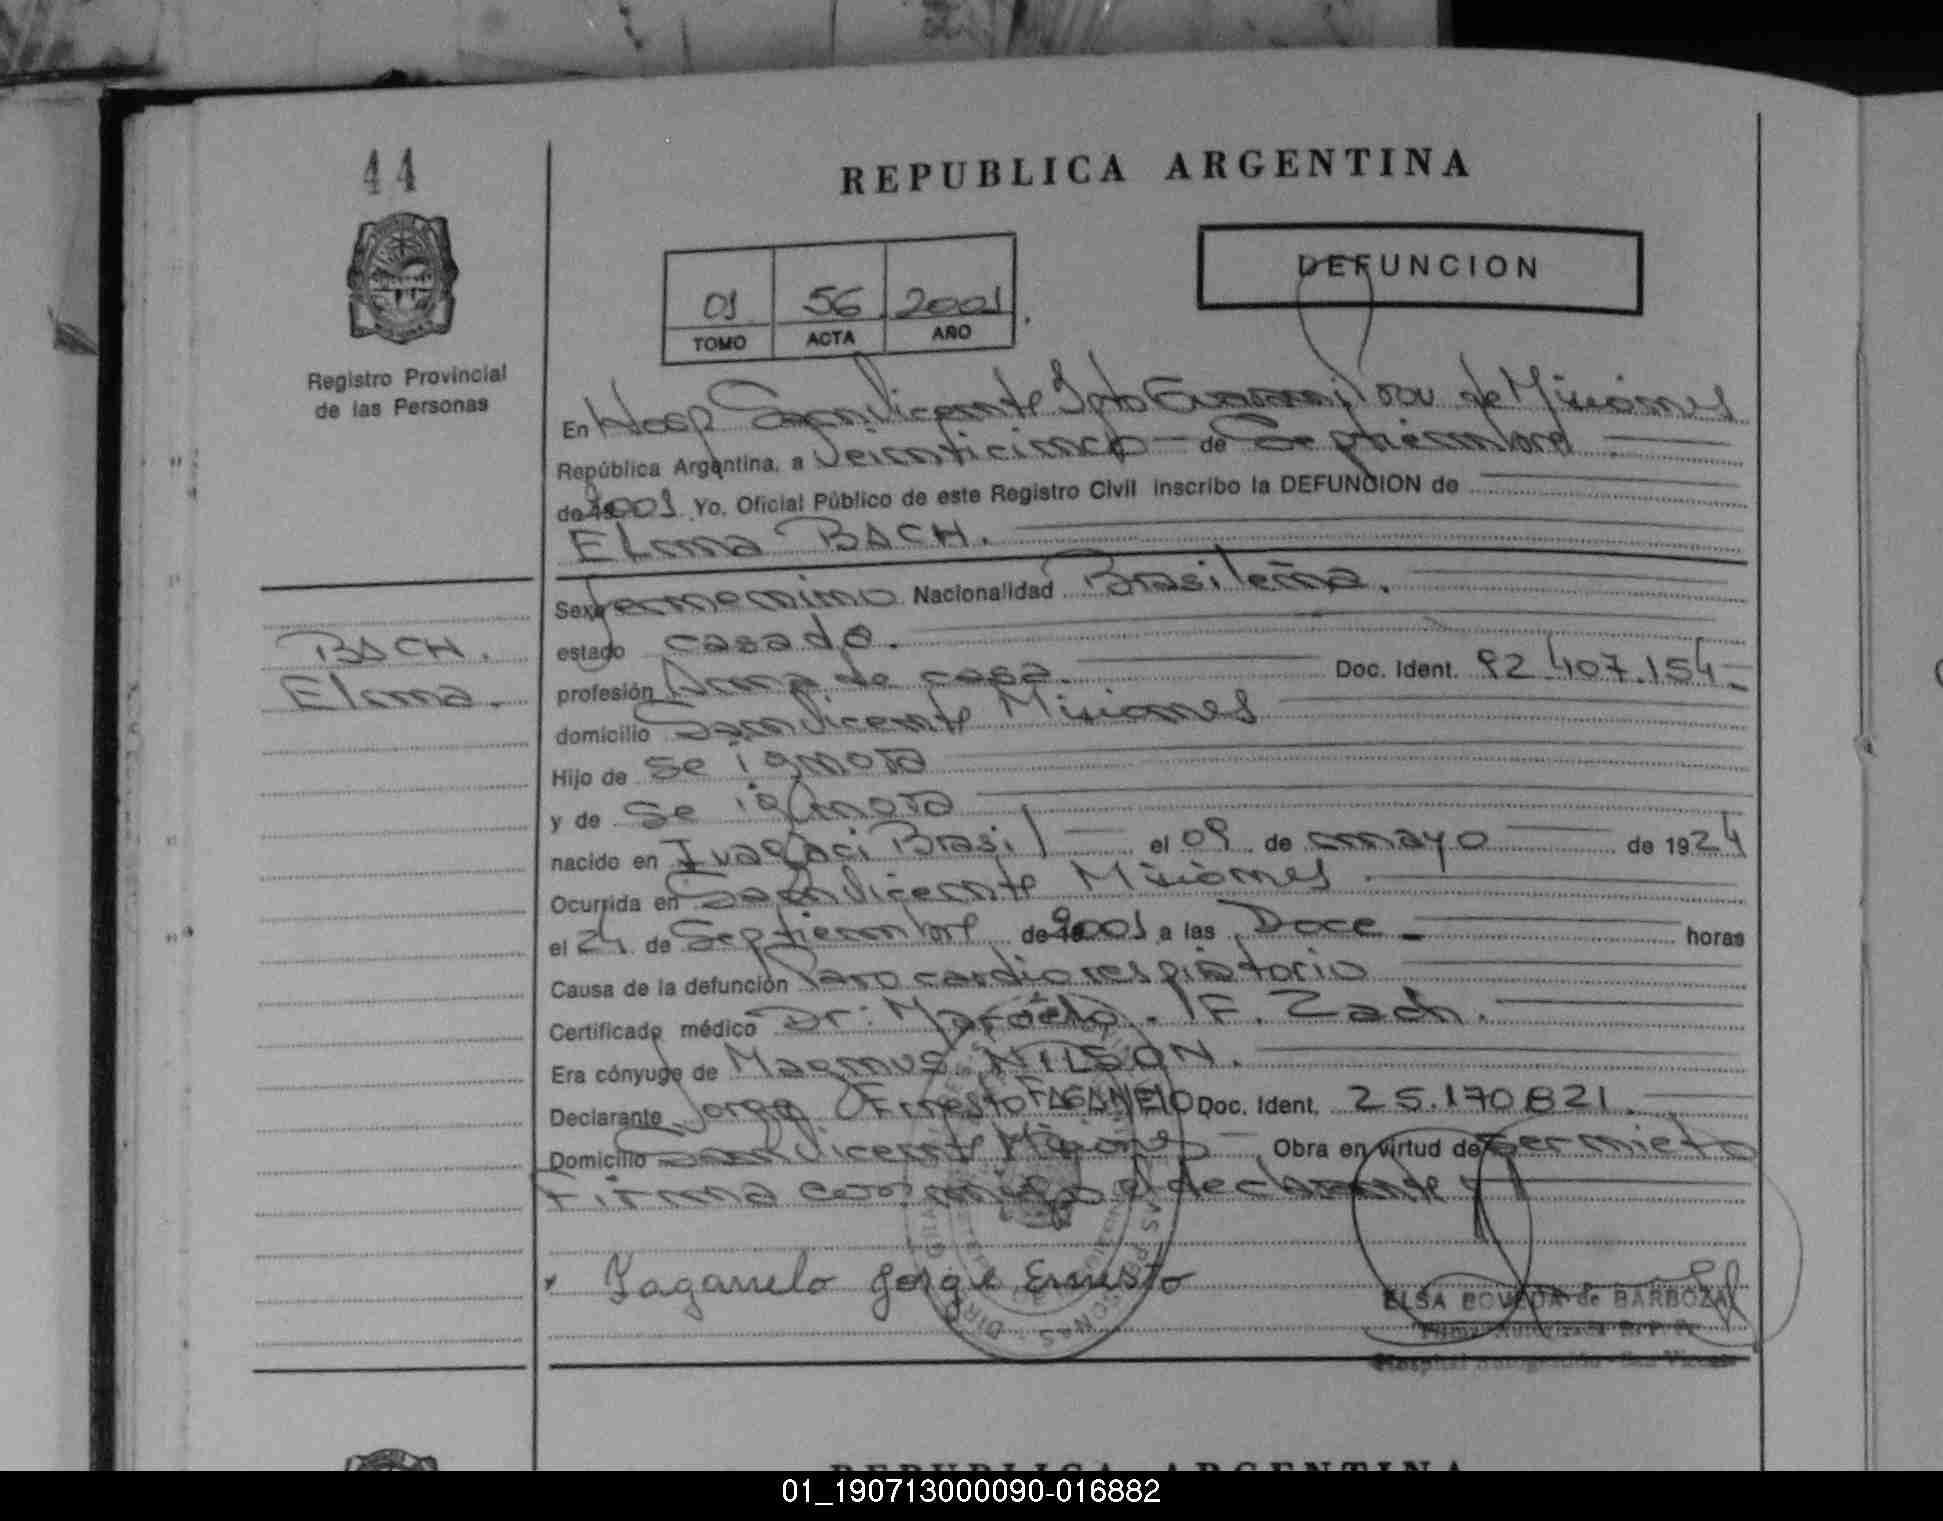 44
REPUBLICA ARGENTINA
DEFUNCION
01 56 2001
TOMO ACTA AÑO
Registro Provincial
de las Personas
En Hosp San Vicente Dpto Guarani Prov de Misiones
República Argentina, a Veinticinco de Septiembre
de 2001 Yo, Oficial Público de este Registro Civil inscribo la DEFUNCION de
Elma BACH.
BACH.
Elma.
Sexo femenino Nacionalidad Brasileña.
estado casado.
profesión Ama de casa. Doc. Ident. 92.407.154
domicilio San Vicente Misiones
Hijo de se ignora
y de se ignora
nacido en Brasil el 09 de mayo de 1924
Ocurrida en San Vicente Misiones
el 24 de Septiembre de 2001 a las Doce horas
Causa de la defunción Paro cardiorespiratorio
Certificado médico Dr: Marcelo. F. Zach.
Era cónyuge de Magnus NILSON.
Declarante Jorge Ernesto FAGANELO Doc. Ident. 25.170.821.
Domicilio San Vicente Misiones Obra en virtud de ser nieto
Firma conmigo el declarante
x Faganelo Jorge Ernesto
ELSA POVEDA de BARBOZA
Firma Autorizada
Hospital Autogestión - San Vicente
REPUBLICA ARGENTINA
01_190713000090-016882